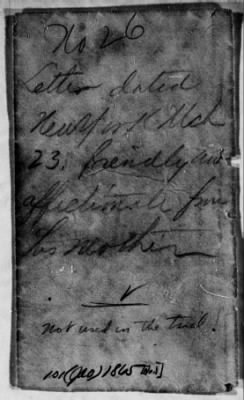 No 26
Letter dated
New York Mch
23. friendly and
affectionate from
his mother
Not used in the trial!
101 (JAO) 1865